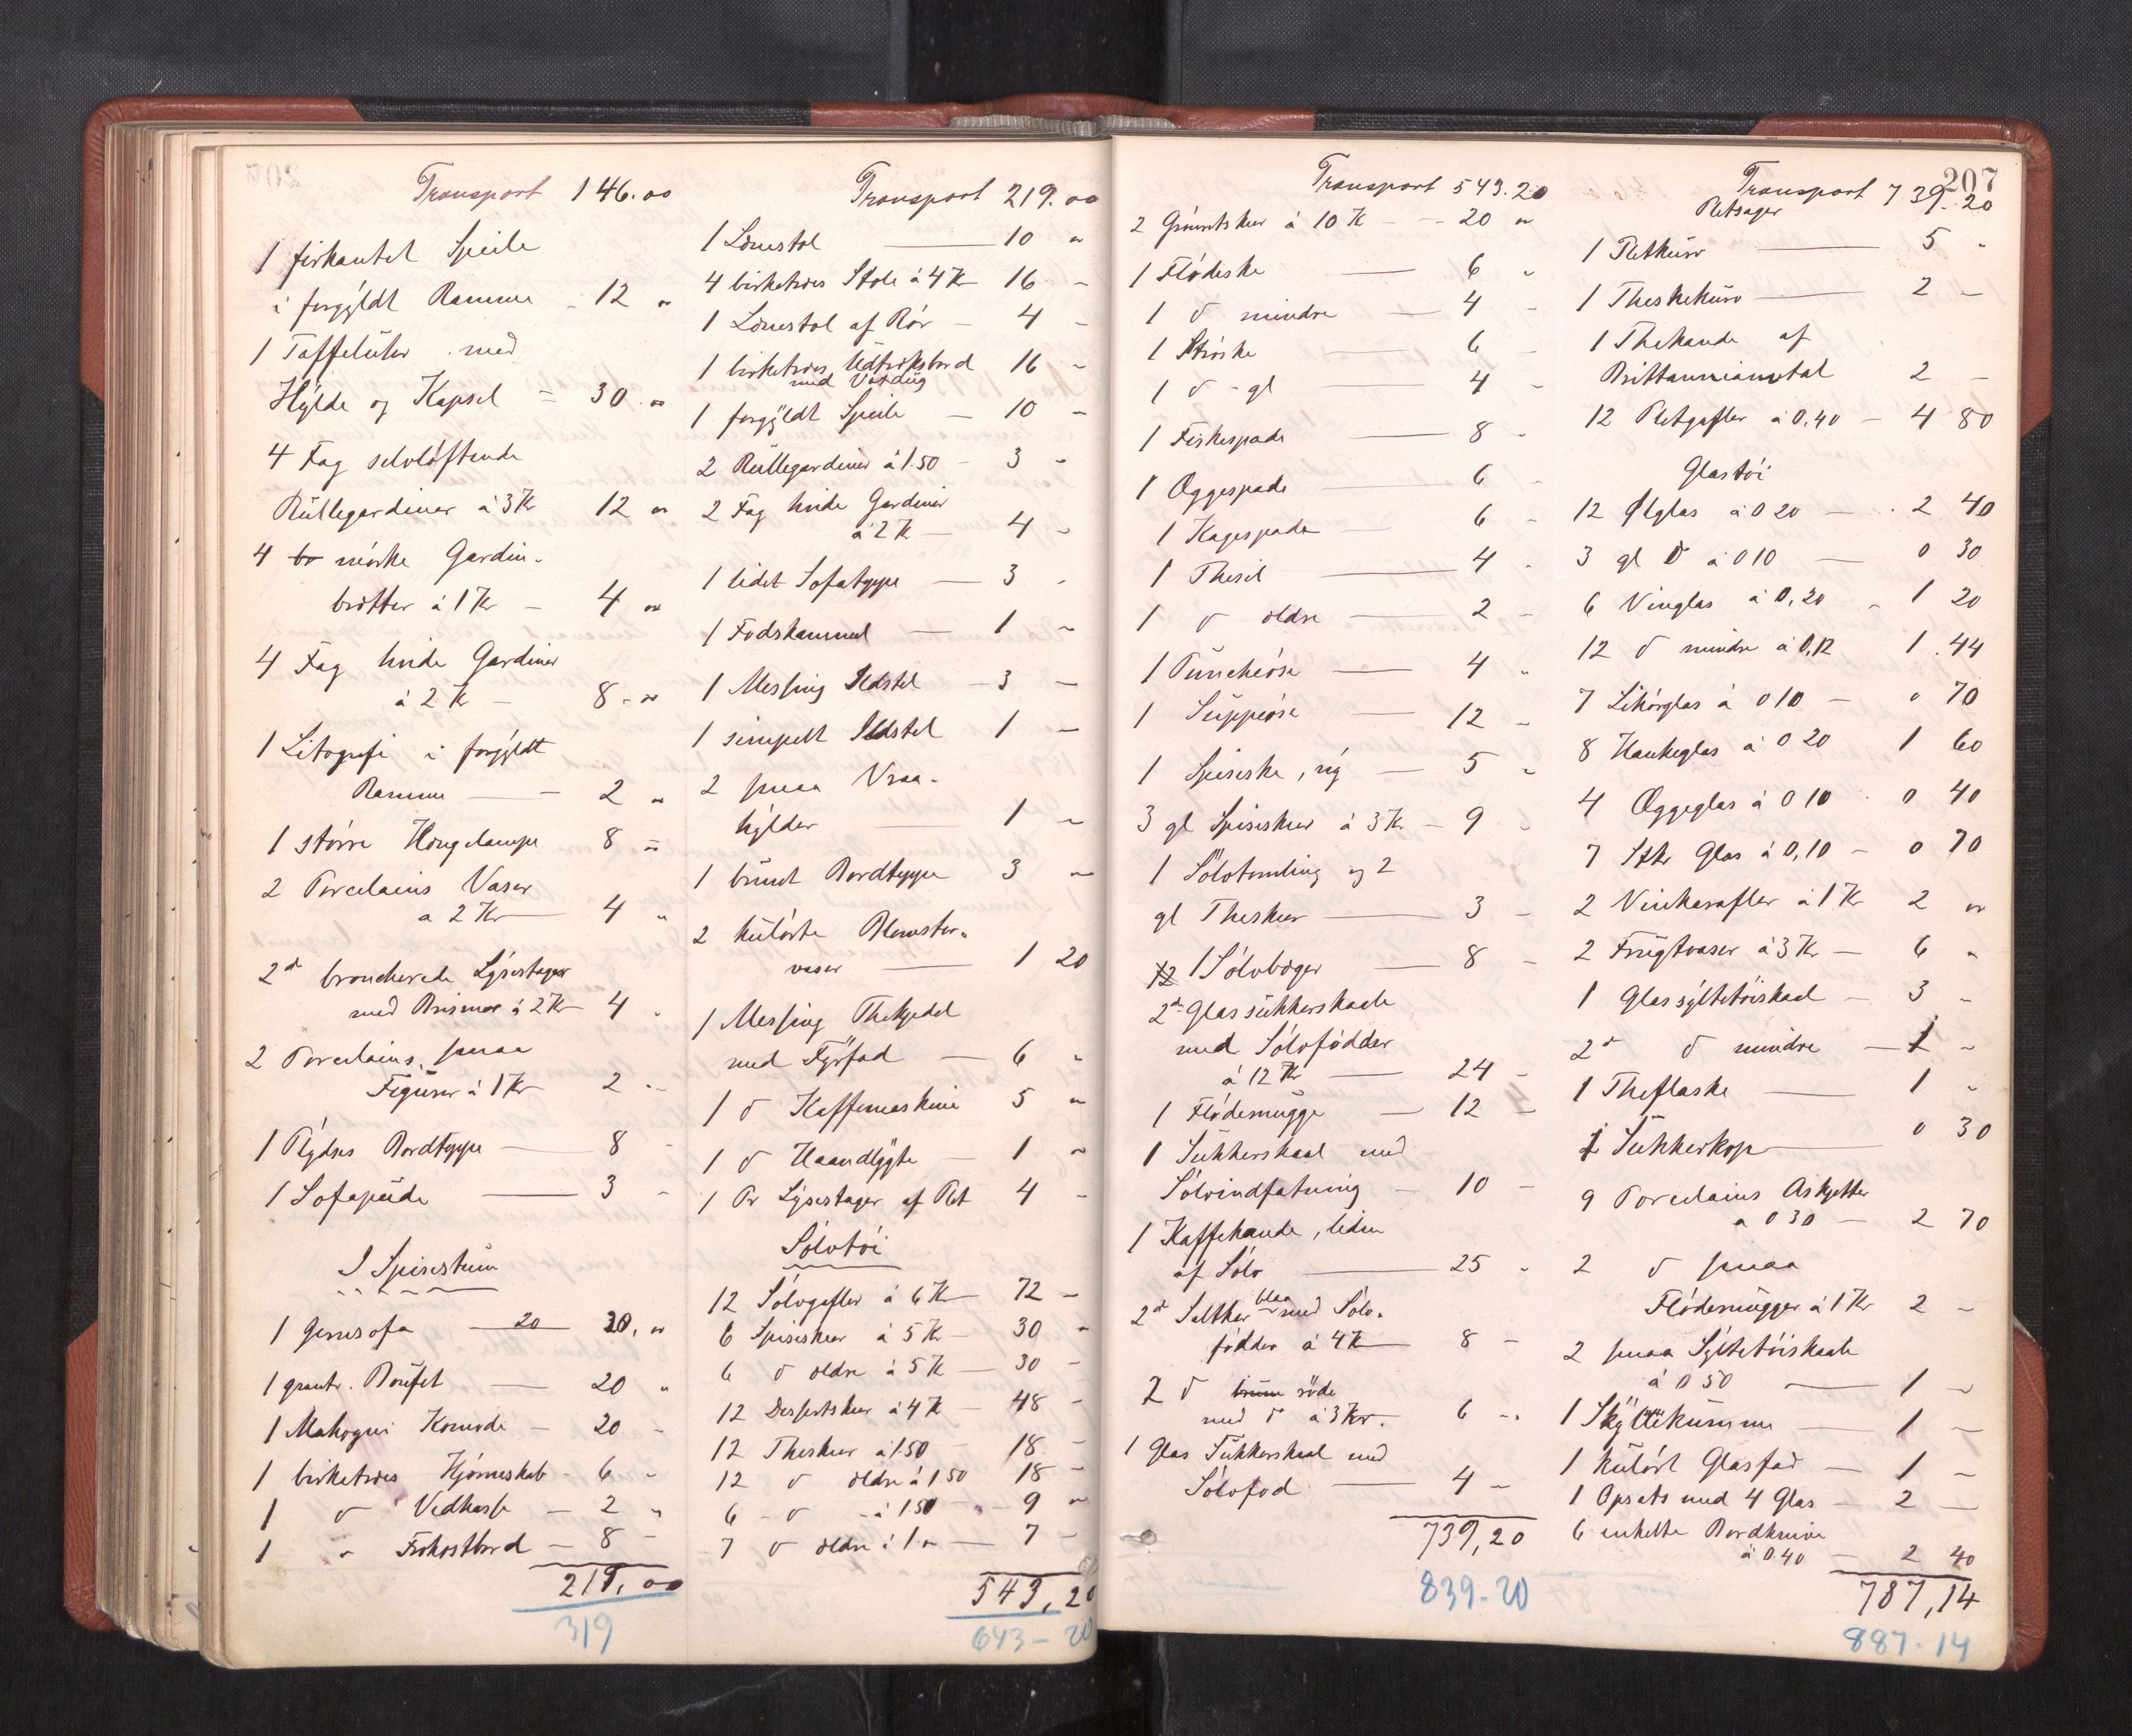 Transport 146.00
1 firkantet Speile
i forgyldt Ramme - 12 "
1 Taffeluhr med
Hylde og Kapsel = 30. "
4 Fag selvløftende
Rullegardiner à 3 Kr 12 "
4 br mørke Gardin-
bretter à 1 Kr - 4 "
4 Fag hvide Gardiner
à 2 Kr - 8 - "
1 Litografi i forgyldt
Ramme - 2 "
1 større Hængelampe 8 "
2 Porcelains Vaser
a 2 Kr 4 "
2 d broncherede Lysestager
med Prismer à 2 Kr 4 "
2 Porcelains smaa
Figurer à 1 Kr 2 "
1 Plydses Bordteppe 8 -
1 Sofapude 3 -
I Spisestuen
1 Gjensofa 20 20, "
1 grant. Boufet 20 "
1 Mahogni Komode - 20 -
1 birketræes Hjørneskab - 6 -
1 d Vedkasse - 2 "
1 " Frokostbord - 8 -
219,00
319
Transport 219.00
1 Lænestol 10 "
4 birketræes Stole à 4 Kr 16 -
1 Lænestol af Rør - 4 -
1 birketræes Udtræksbord 16 -
med Voxdug
1 forgyldt Speile - 10 -
2 Rullegardiner à 1.50 - 3 -
2 Fag hvide Gardiner
à 2 Kr - 4 -
1 lidet Sofateppe - 3 -
1 Fodskammel - 1 -
1 Messing Ildstel - 3 -
1 simpelt Ildstel 1 -
2 smaa Vraa-
hylder 1 -
1 brunt Bordteppe 3 -
2 kulørte Blomster-
vaser 1 20
1 Messing Thekjedel
med Fyrfad - 6 "
1 d Kaffemaskine 5 "
1 d Haandlygte - 1 "
1 Pr Lysestager af Plet 4 -
Sølvtøi
12 Sølvgafler à 6 Kr 72 -
6 Spiseskeer à 5 Kr - 30 "
6 d ældre à 5 Kr - 30 -
12 Dessertskeer à 4 Kr - 48 -
12 Theskeer à 1.50 - 18 -
12 d ældre à 1 50 18 -
6 - d - à 1 50 - 9 "
7 d ældre à 1 " - 7 -
543,20
643-20
Transport 543.20
2 Grøntskeer à 10 Kr - - 20 "
1 Flødeske - 6 "
1 d mindre - 4 -
1 Strøske 6 -
1 d - gl 4 -
1 Fiskespade 8 -
1 Æggespade 6 -
1 Kagespade - 6 -
1 Thesil 4 -
1 d ældre 2 -
1 Puncheøse 4 "
1 Suppeøse 12 -
1 Spiseske, ny - 5 "
3 gl Spiseskeer à 3 Kr - 9 -
1 Sølvtomling og 2
gl Theskeer 3 -
12 1 Sølvbæger 8 -
2 d Glassukkerskaale
med Sølvfødder
à 12 Kr 24 -
1 Flødemugge - 12 -
1 Sukkerskaal med
Sølvindfatning - 10 -
1 Kaffekande, liden
af Sølv 25 "
2 d Saltkar blaa med Sølv-
fødder à 4 Kr 8 -
2 d brune røde
med d à 3 Kr. 6 -
1 Glas Sukkerskaal med
Sølvfod 4 -
739,20
839-20
207
Transport 739.20
Pletsager
1 Pletkurv 5 "
1 Theskekurv 2 -
1 Thekande af
Brittanniametal 2 -
12 Pletgafler à 0,40 - 4 80
Glastøi
12 Ølglas à 0 20 - 2 40
3 gl d à 0 10 - 0 30
6 Vinglas à 0,20 - 1 20
12 d mindre à 0,12 1.44
7 Likørglas à 0 10 - 0 70
8 Hankeglas à 0 20 1 60
4 Æggeglas à 0 10 0 40
7 Stk Glas à 0,10 - 0 70
2 Vinkarafler à 1 Kr 2 "
2 Frugtvaser à 3 Kr - 6 "
1 Glassyltetøiskaal - 3 -
2 d d mindre - 1 -
1 Theflaske 1 "
1 Sukkerkop 0 30
9 Porcelains Askjetter
a 0 30 - 2 70
2 d smaa
Flødemugger à 1 Kr 2 -
2 smaa Syltetøiskaale
à 0 50 1 -
1 Skyllekumme 1 -
1 kulørt Glasfad - 1 -
1 Opsats med 4 Glas - 2 -
6 enkelte Bordknive
à 0 40 - 2 40
787,14
887.14